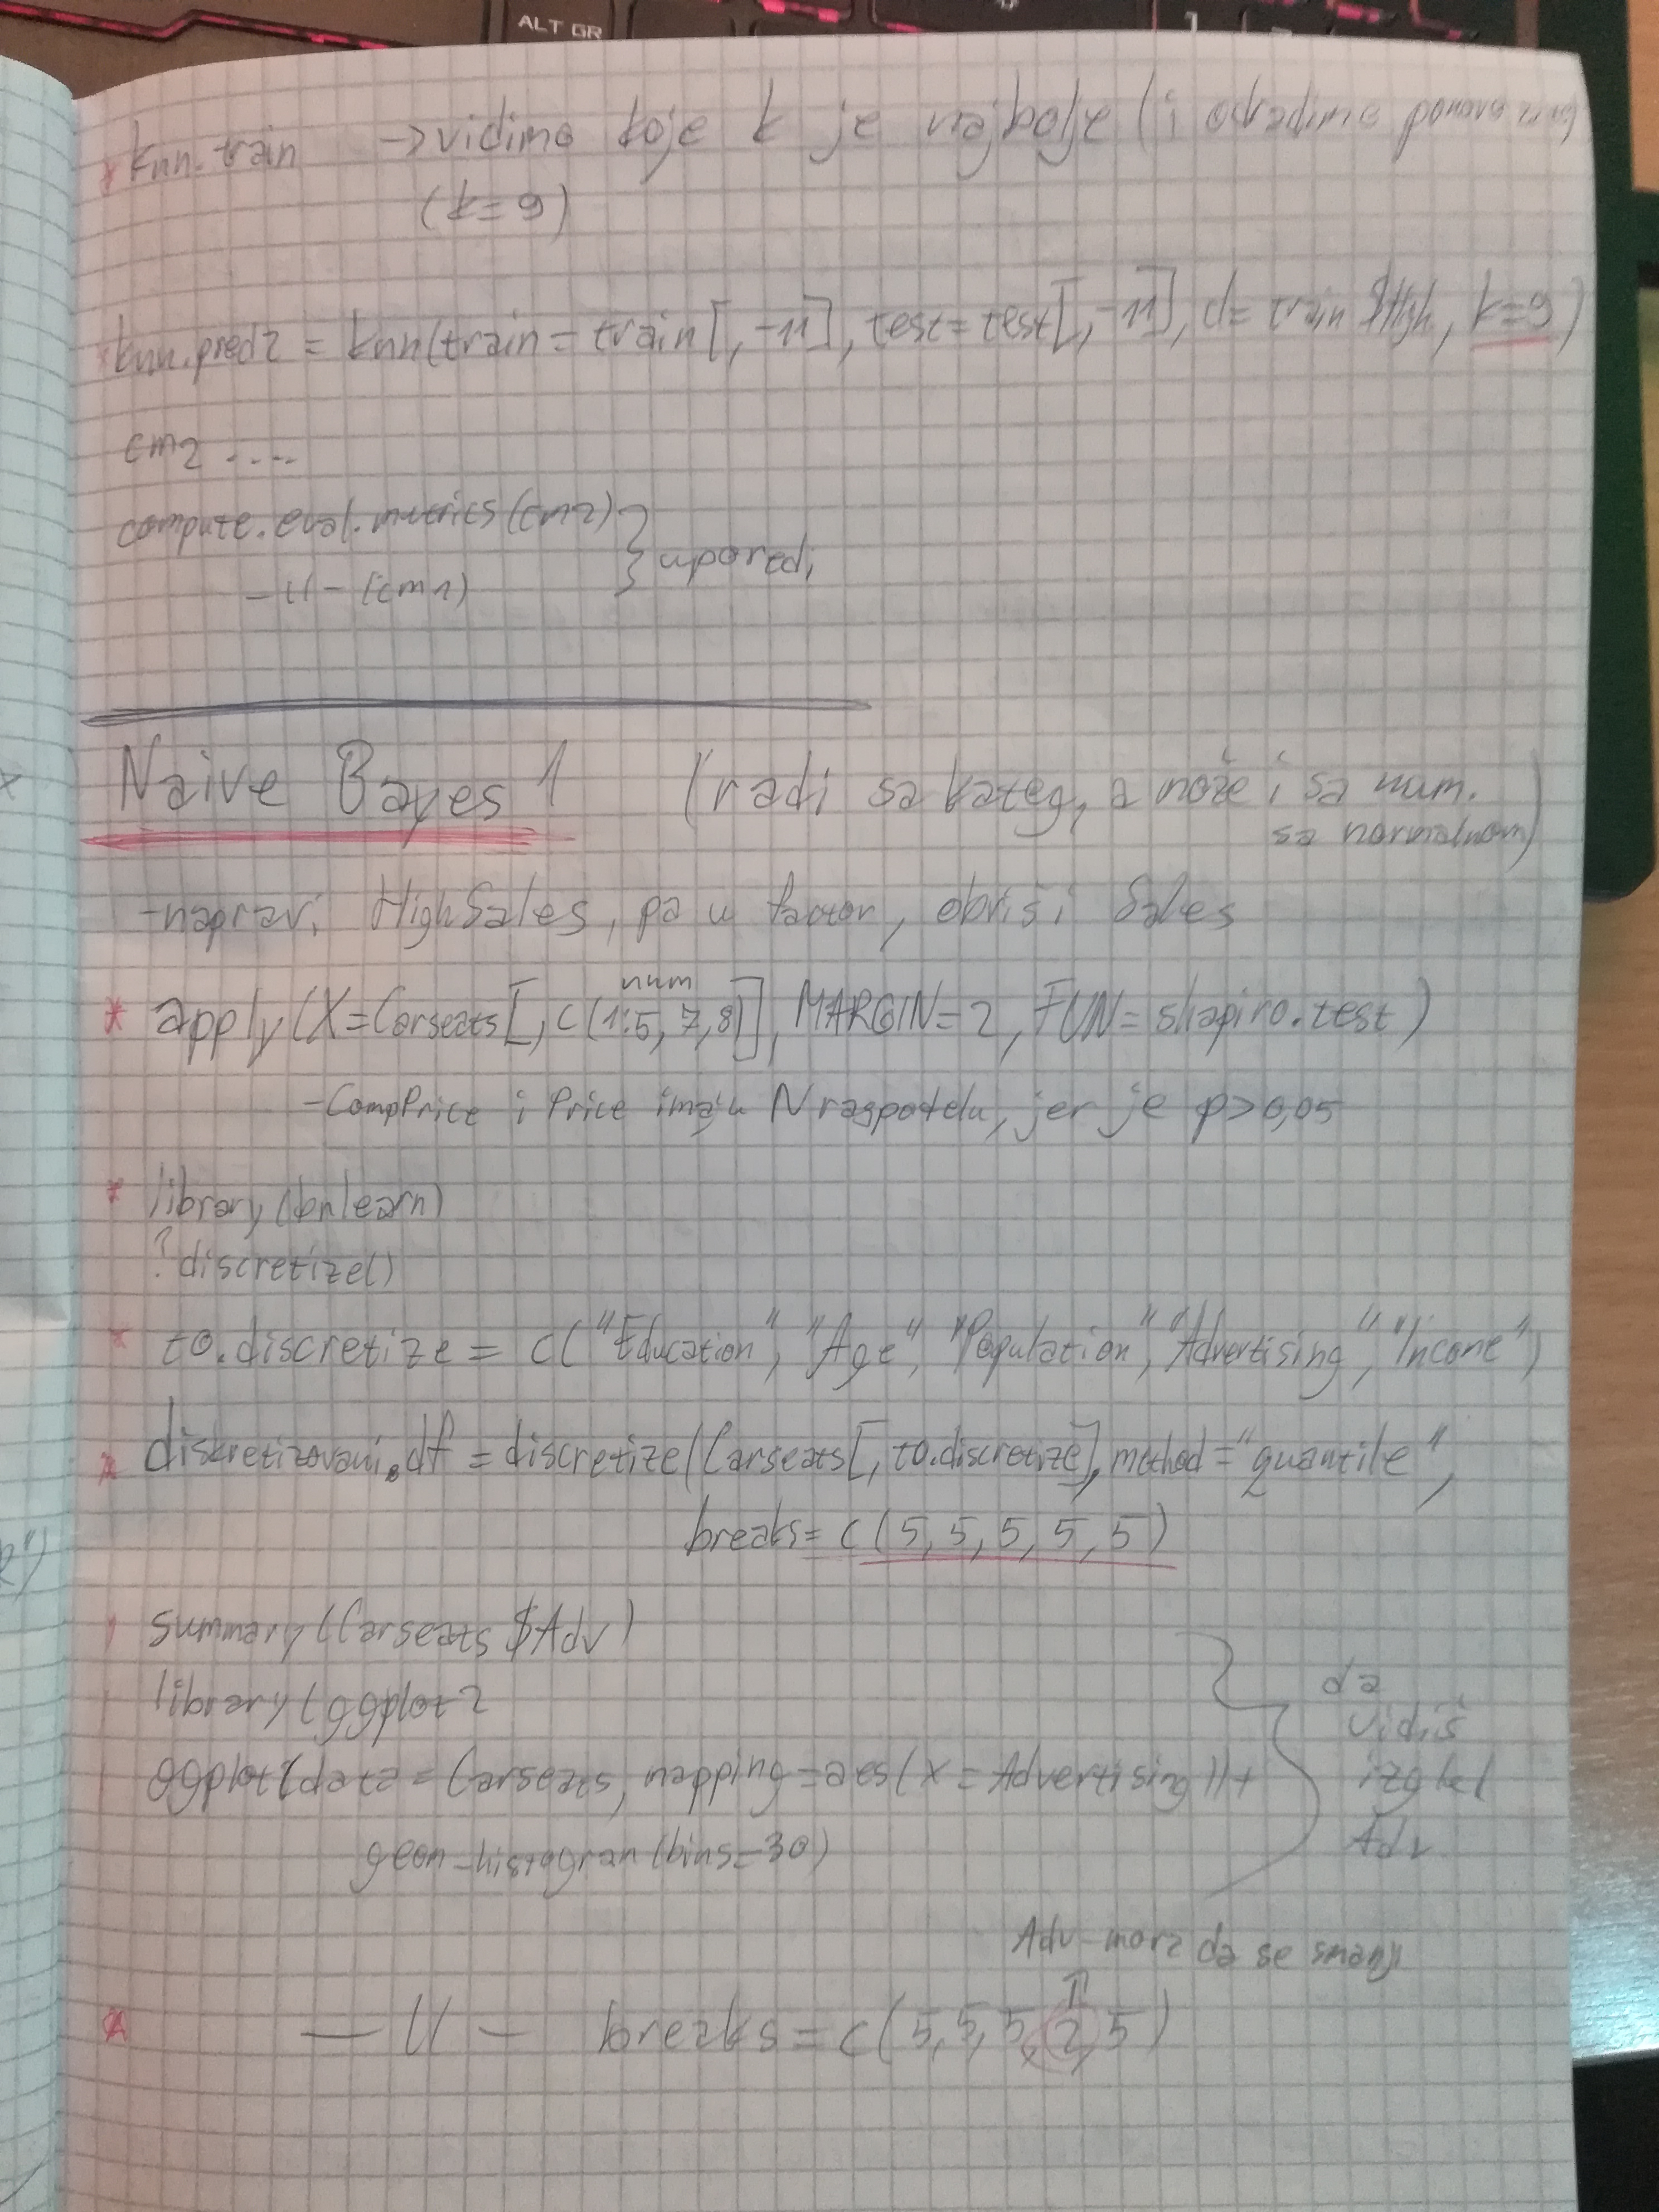 ALT GR
* knn.train -> vidimo koje k je najbolje (i odradimo ponovo
(k=9)
knn.pred2 = knn(train = train[, -11], test = test[, -11], cl = train$High, k=9)
cm2 ....
compute.eval.metrics (cm2) } uporedi
-11- (cm1)
Naive Bayes 1 (radi sa kateg, a može i sa num.
sa normalnom)
- napravi HighSales, pa u factor, obrisi Sales
num
* apply(X=Carseats[, c(1:5, 7,8)], MARGIN=2, FUN=shapiro.test)
- CompPrice i Price imaju N raspodelu, jer je p>0,05
* library(bnlearn)
?discretize()
* to.discretize = c("Education", "Age", "Population", "Advertising", "Income")
* diskretizovani.df = discretize(Carseats[, to.discretize], method="quantile",
breaks= c(5, 5, 5, 5, 5)
summary(Carseats $Adv)
library(ggplot2
ggplot(data = Carseats, mapping=aes(x = Advertising))+
geom_histogram (bins=30)
da
vidiš
izgled
Adv
Adv mora da se smanji
* — 11 — breaks = c(5,5,5,2,5)